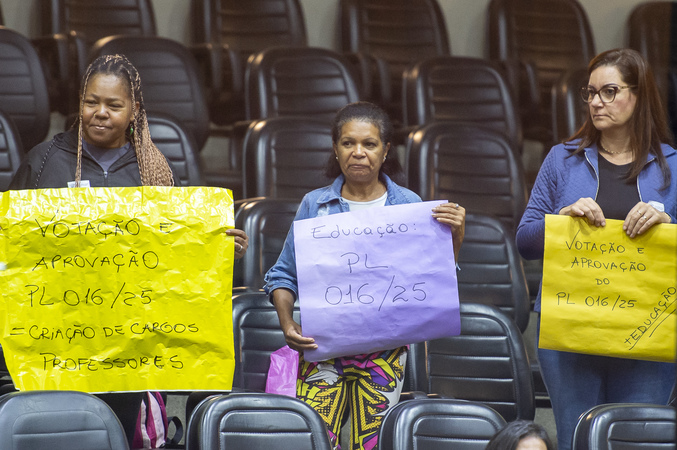 VOTAÇÃO E
APROVAÇÃO
PL 016/25
= CRIAÇÃO DE CARGOS
PROFESSORES
EDUCAÇÃO:
PL
016/25
VOTAÇÃO E
APROVAÇÃO
DO
PL 016/25
+ EDUCAÇÃO